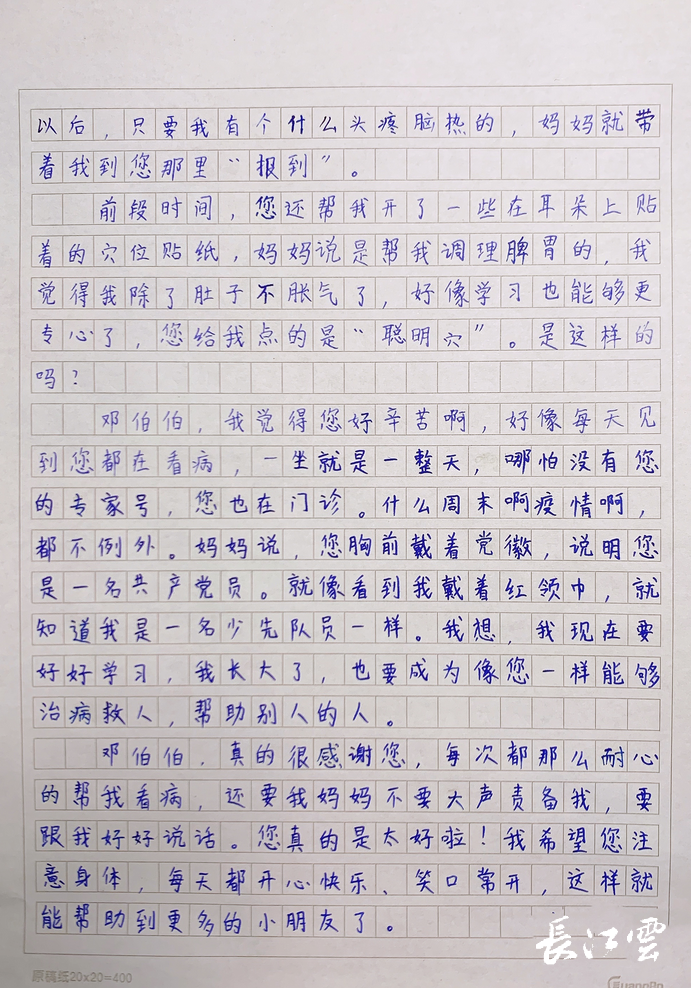 以后，只要我有个什么头疼脑热的，妈妈就带
着我到您那里“报到”。
前段时间，您还帮我开了一些在耳朵上贴
着的穴位贴纸，妈妈说是帮我调理脾胃的，我
觉得我除了肚子不胀气了，好像学习也能够更
专心了，您给我点的是“聪明穴”。是这样的
吗？
邓伯伯，我觉得您好辛苦啊，好像每天见
到您都在看病，一坐就是一整天，哪怕没有您
的专家号，您也在门诊。什么周末啊疫情啊，
都不例外。妈妈说，您胸前戴着党徽，说明您
是一名共产党员。就像看到我戴着红领巾，就
知道我是一名少先队员一样。我想，我现在要
好好学习，我长大了，也要成为像您一样能够
治病救人，帮助别人的人。
邓伯伯，真的很感谢您，每次都那么耐心
的帮我看病，还要我妈妈不要大声责备我，要
跟我好好说话。您真的是太好啦！我希望您注
意身体，每天都开心快乐、笑口常开，这样就
能帮助到更多的小朋友了。
長江雲
原稿纸20x20=400